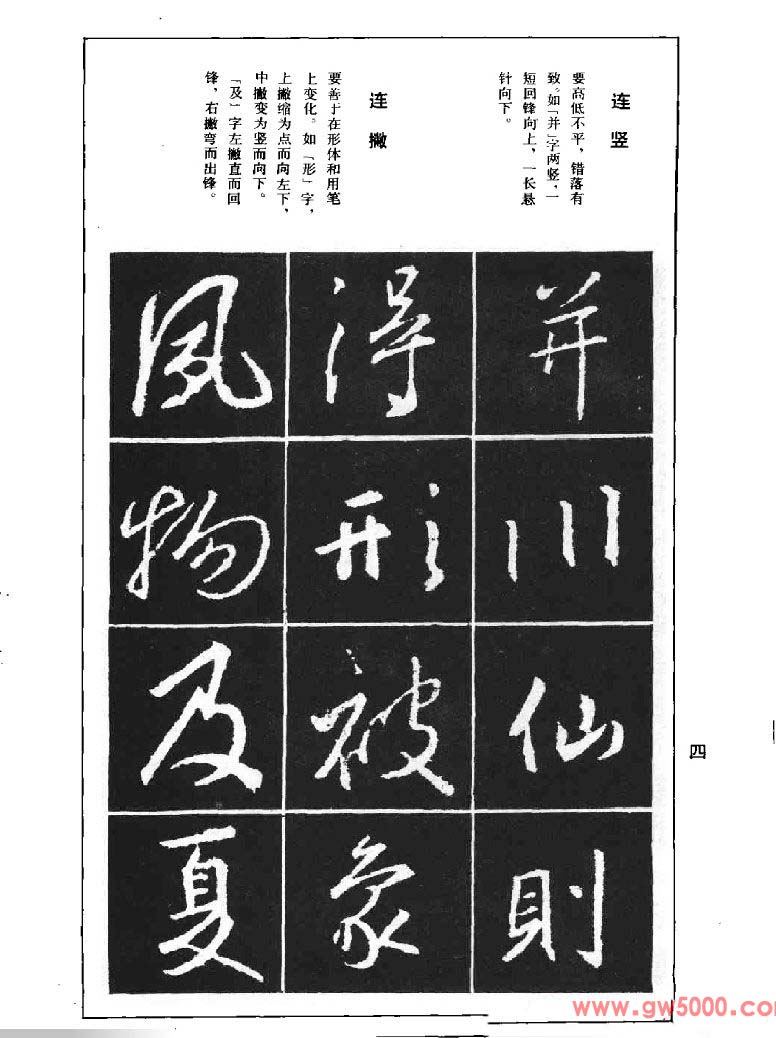 连竖
要高低不平，错落有
致。如「并」字两竖，一
短回锋向上，一长悬
针向下。
连撇
要善于在形体和用笔
上变化。如「形」字，
上撇缩为点而向左下，
中撇变为竖而向下。
「及」字左撇直而回
锋，右撇弯而出锋。
并川仙則
得形被象
風物及夏
四
www.gw5000.com